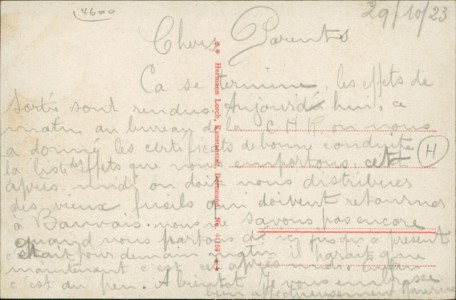 4600
29/10/23
Chers Parents
Ca se termine, les effets de
sortis sont rendus. Aujourd hui, ce
matin au bureau de la C.H.R. on nous
a donné les certificats de bonne conduite
la list effets que nous emportons, cet
après midi on doit nous distribuer
des vieux fusils qui doivent retourner
à Beauvais. nous ne savons pas encore
quand nous partons d'ici jusqu'à présent
c'était pour demain matin il paraît que
maintenant c'est cet après midi. Enfin
c'est du peu. A bientôt je vous embrasse
bien affectueusement
H
Hermann Lorch, Kunstanstalt, Dortmund. No.